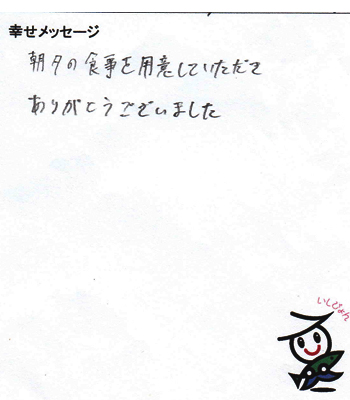 幸せメッセージ
朝夕の食事を用意していただき
ありがとうございました
いしぴょん